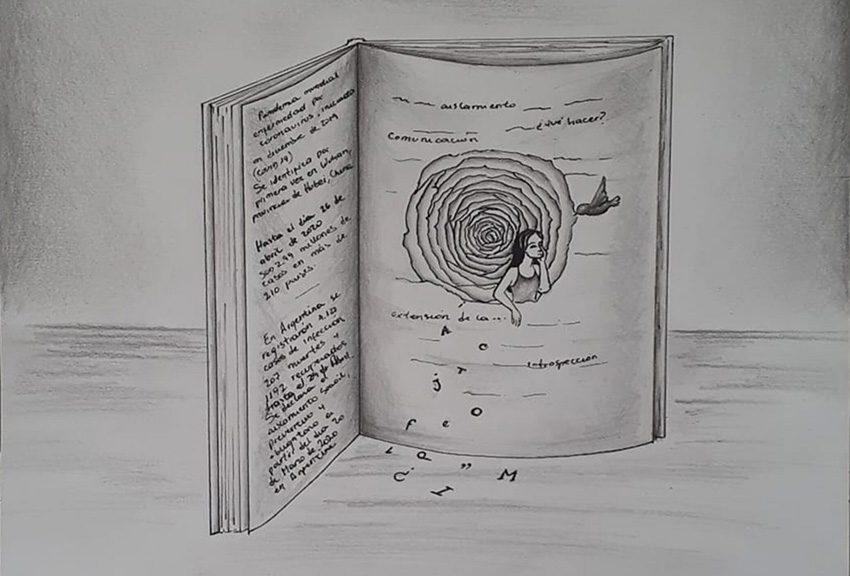 Pandemia mundial
enfermedad por
coronavirus, iniciada
en diciembre de 2019
(COVID 19)
Se identifico por
primera vez en Wuhan,
provincia de Hubei, China
Hasta el día 26 de
abril de 2020
2.99 millones de
casos en más de
210 países.
En Argentina se
registraron
casos de infección
207 muertes
1192 recuperados
hasta el 28 de Abril.
Se declara el
aislamiento social,
preventivo y
obligatorio en
partir del día 20
de Marzo de 2020
en Argentina
aislamiento
¿Qué hacer?
Comunicación
extensión de la...
A
c
T
j
O
f
e
i
a
"
M
C
I
introspección